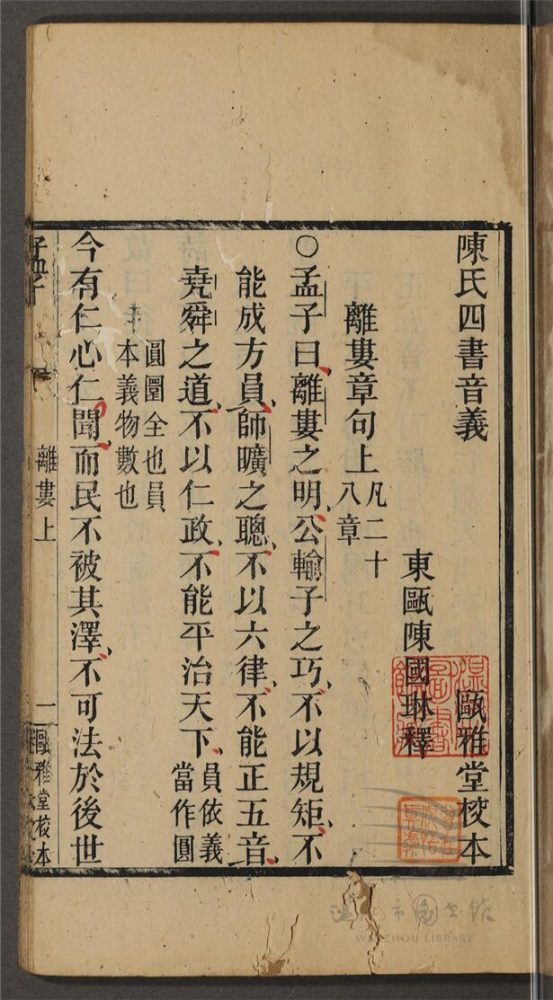 陳氏四書音義　甌雅堂校本
東甌陳國琳釋
離婁章句上凡二十八章
○孟子曰離婁之明公輸子之巧不以規矩不
能成方員師曠之聰不以六律不能正五音
堯舜之道不以仁政不能平治天下員依義當作圓
圓圜全也員
本義物數也
今有仁心仁聞而民不被其澤不可法於後世
離婁上
一
甌雅堂校本
WENZHOU LIBRARY